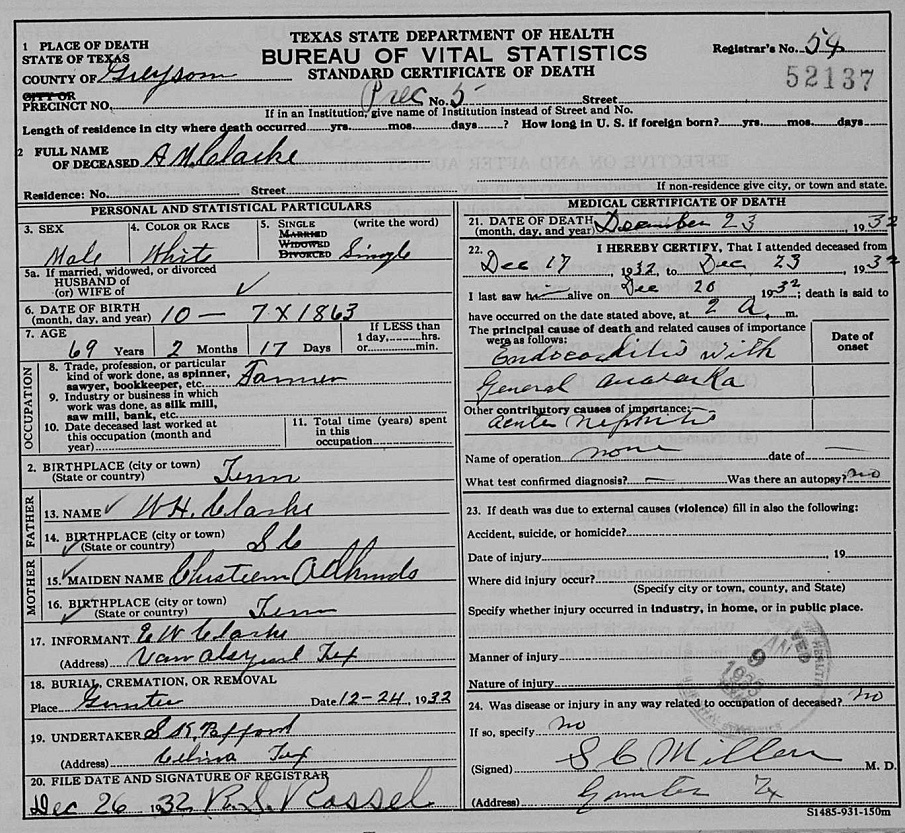 TEXAS STATE DEPARTMENT OF HEALTH
BUREAU OF VITAL STATISTICS
STANDARD CERTIFICATE OF DEATH
Registrar's No. 54
52137
1 PLACE OF DEATH
STATE OF TEXAS
COUNTY OF Greyson
CITY OR
PRECINCT NO. Prec No. 5 Street
If in an Institution, give name of Institution instead of Street and No.
Length of residence in city where death occurred yrs. mos. days ? How long in U. S. if foreign born? yrs. mos. days
2 FULL NAME
OF DECEASED A N Clarke
Residence: No. Street If non-residence give city, or town and state.
PERSONAL AND STATISTICAL PARTICULARS
3. SEX 4. COLOR OR RACE 5. SINGLE (write the word)
MARRIED
WIDOWED
DIVORCED
Male White Single
5a. If married, widowed, or divorced
HUSBAND OF
(or) WIFE OF
6. DATE OF BIRTH
(month, day, and year) 10 — 7 x 1863
7. AGE If LESS than
1 day, hrs.
69 Years 2 Months 17 Days or min.
OCCUPATION
8. Trade, profession, or particular
kind of work done, as spinner,
sawyer, bookkeeper, etc. Farmer
9. Industry or business in which
work was done, as silk mill,
saw mill, bank, etc.
10. Date deceased last worked at
this occupation (month and
year)
11. Total time (years) spent
in this
occupation
2. BIRTHPLACE (city or town)
(State or country) Tenn
FATHER
13. NAME W H. Clarke
14. BIRTHPLACE (city or town)
(State or country) S C
MOTHER
15. MAIDEN NAME
16. BIRTHPLACE (city or town)
(State or country) Tenn
17. INFORMANT E W Clarke
(Address) Van Alstyne Tex
18. BURIAL, CREMATION, OR REMOVAL
Place Gunter Date 12-24, 1932
19. UNDERTAKER S K
(Address) Celina Tex
20. FILE DATE AND SIGNATURE OF REGISTRAR
Dec 26 1932 R. S. Rassel
MEDICAL CERTIFICATE OF DEATH
21. DATE OF DEATH
(month, day, and year) December 23 1932
22. I HEREBY CERTIFY, That I attended deceased from
Dec 17, 1932, to Dec, 23, 1932
I last saw h alive on Dec 20 1932; death is said to
have occurred on the date stated above, at 2 a. m.
The principal cause of death and related causes of importance
were as follows:
Date of
onset
Endocarditis with
General anasarka
Other contributory causes of importance:
acute nephritis
Name of operation none date of —
What test confirmed diagnosis? — Was there an autopsy? no
23. If death was due to external causes (violence) fill in also the following:
Accident, suicide, or homicide?
Date of injury , 19
Where did injury occur?
(Specify city or town, county, and State)
Specify whether injury occurred in industry, in home, or in public place.
Manner of injury
Nature of injury
24. Was disease or injury in any way related to occupation of deceased? no
If so, specify no
(Signed) S C Miller M. D.
(Address) Gunter Tx
S1485-931-150m